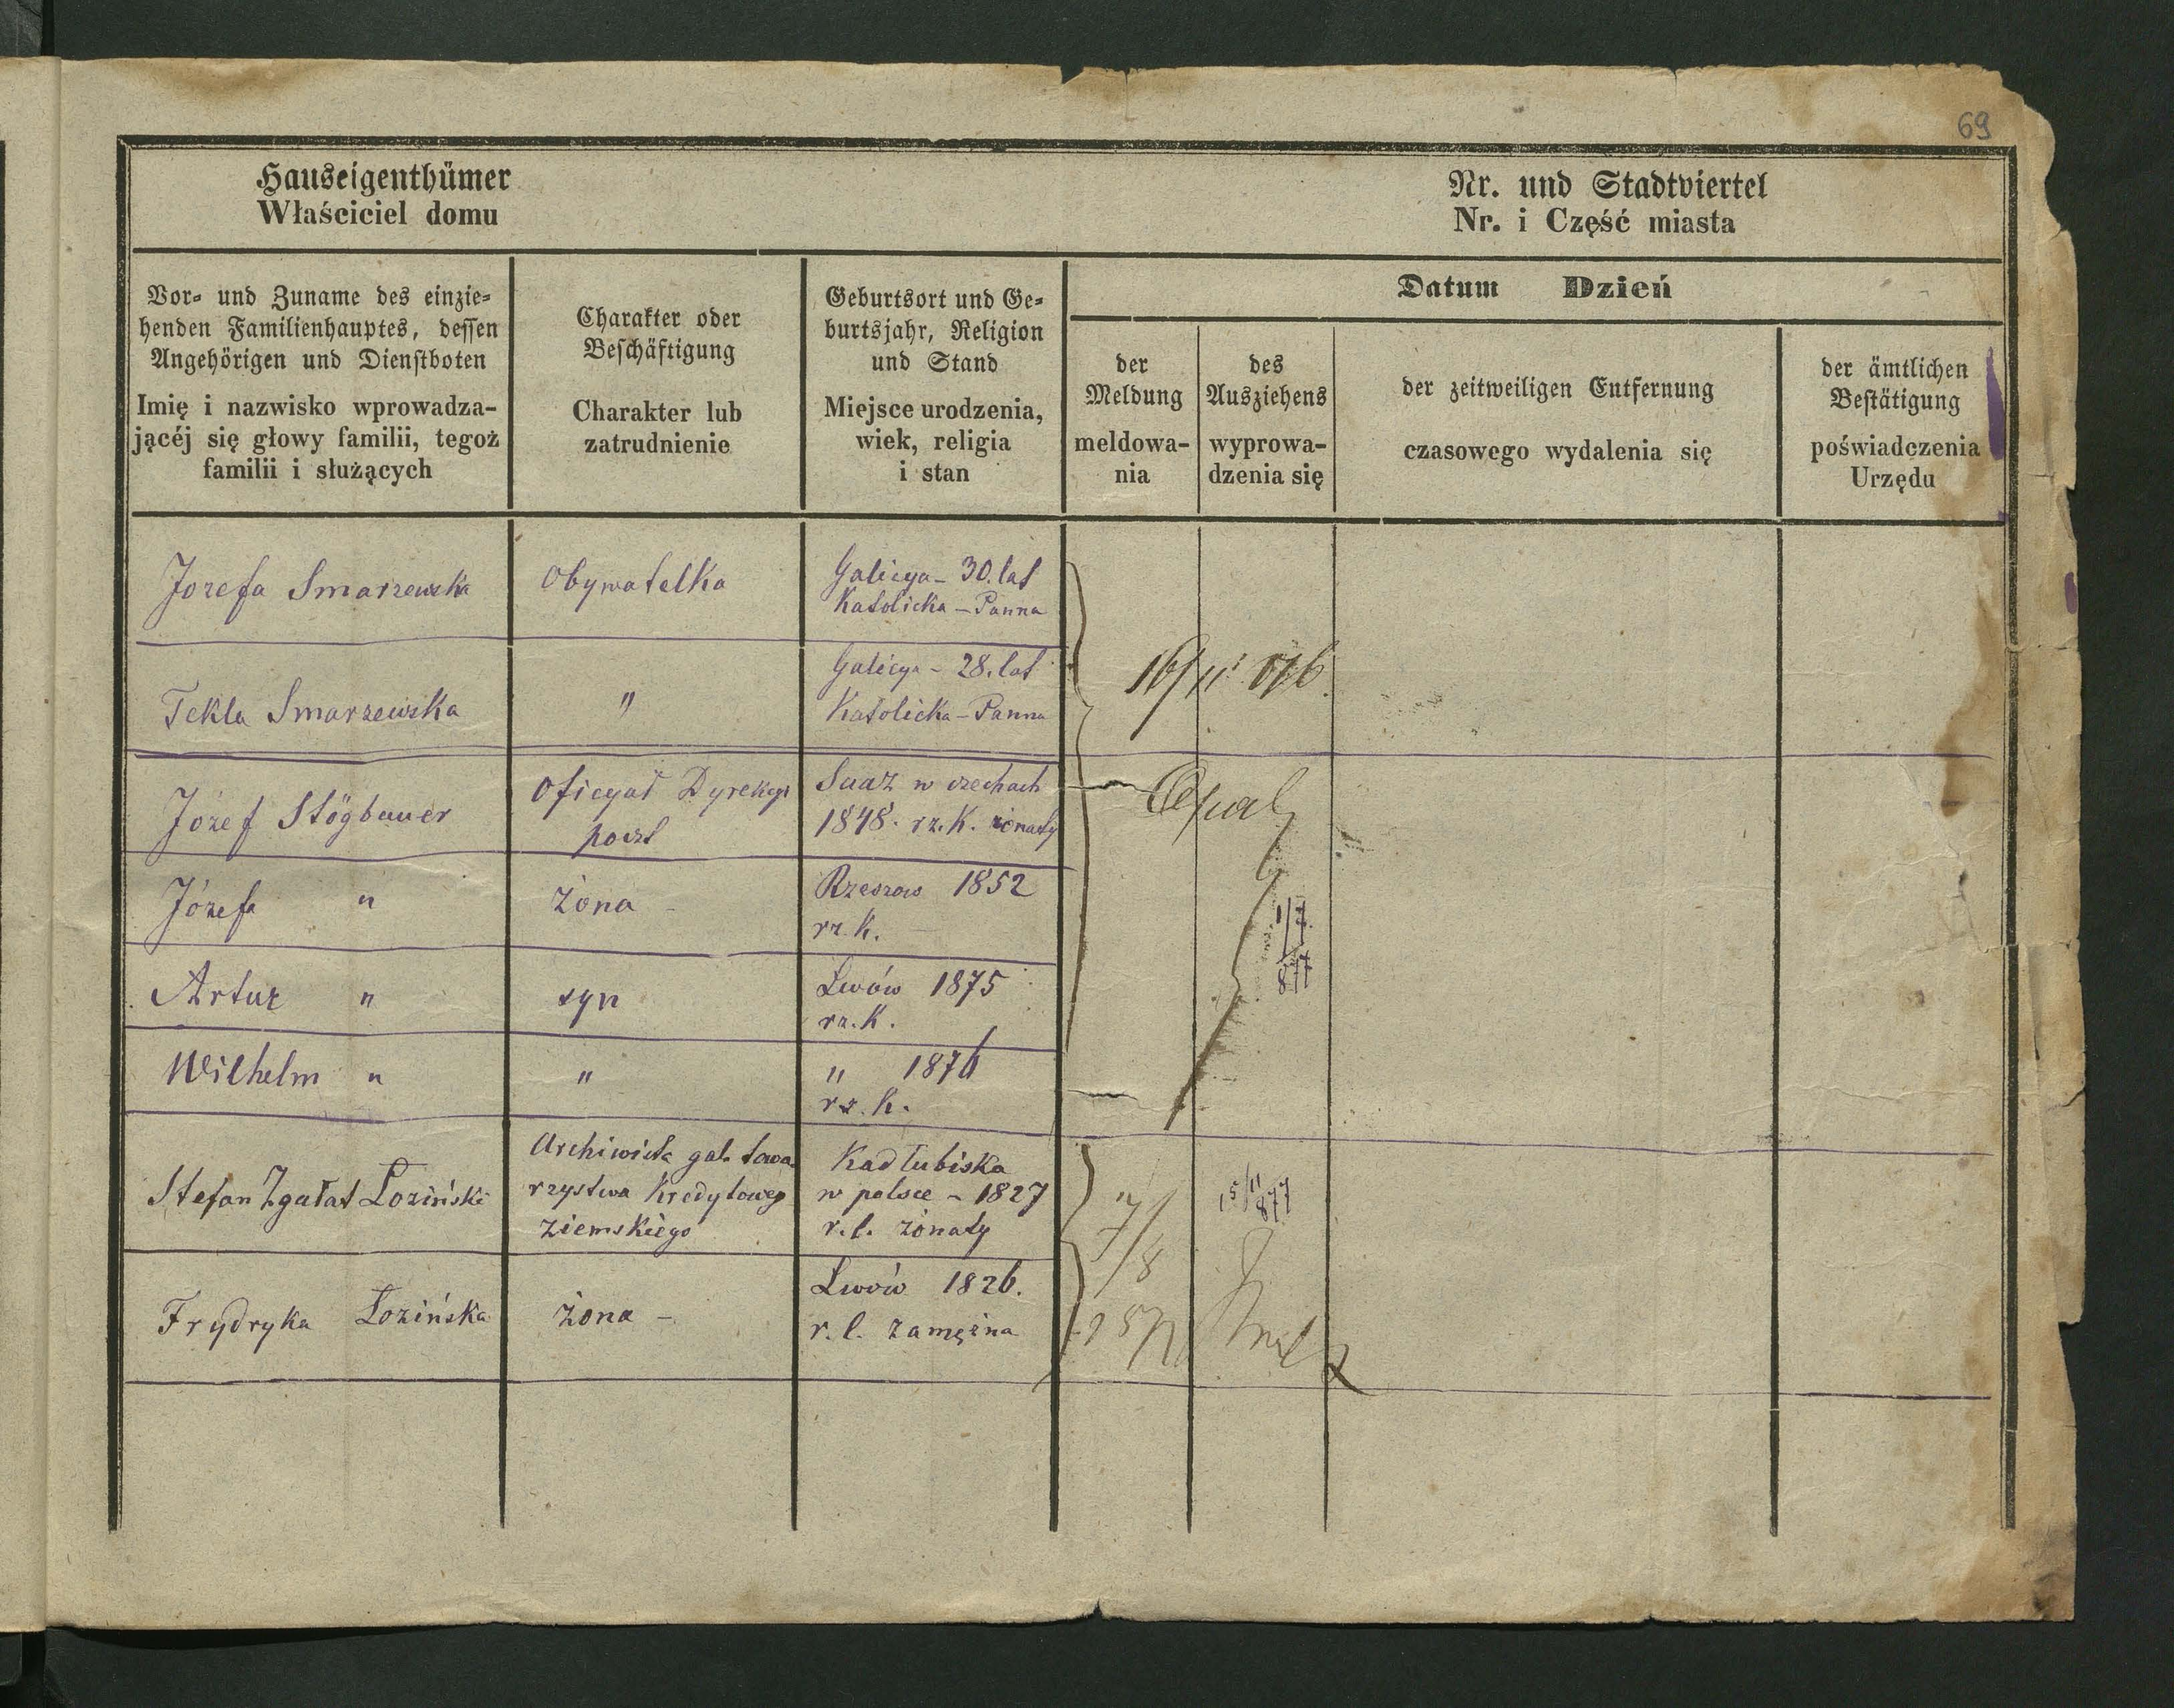 69
Hauseigenthümer
Właściciel domu
Nr. und Stadtviertel
Nr. i Część miasta
Vor- und Zuname des einzie-
henden Familienhauptes, dessen
Angehörigen und Dienstboten
Imię i nazwisko wprowadza-
jącéj się głowy familii, tegoż
familii i służących
Charakter oder
Beschäftigung
Charakter lub
zatrudnienie
Geburtsort und Ge-
burtsjahr, Religion
und Stand
Miejsce urodzenia,
wiek, religia
i stan
Datum Dzień
der
Meldung
meldowa-
nia
des
Ausziehens
wyprowa-
dzenia się
der zeitweiligen Entfernung
czasowego wydalenia się
der ämtlichen
Bestätigung
poświadczenia
Urzędu
Jozefa Smarzewska
Obywatelka
Galicya - 30. lat
Katolicka - Panna
Tekla Smarzewska
"
Galicya - 28. lat
Katolicka - Panna
16/11 876.
Józef Stögbauer
Oficyał Dyrekcyi
poczt
Saaz w czechach
1848. rz. K. żonaty
Józefa "
żona -
Rzeszow 1852
rz. K.
1/7
877
Artur "
syn
Lwów 1875
rz. K.
Wilhelm "
"
" 1876
rz. K.
Stefan Zgałat Łoziński
Archiwista gal. towa-
rzystwa Kredytowego
ziemskiego
Kadłubiska
w polsce - 1827
r. l. żonaty
15/11
877
Frydryka Łozińska
żona -
Lwów 1826.
r. l. zamężna